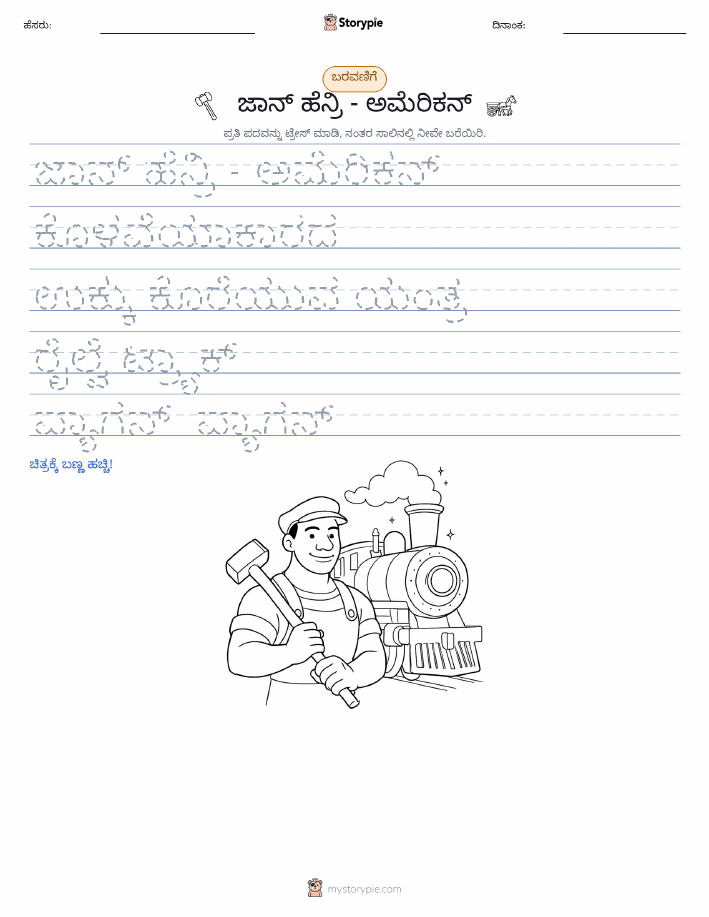 ಹೆಸರು:
Storypie
ದಿನಾಂಕ:
ಬರವಣಿಗೆ
ಜಾನ್ ಹೆನ್ರಿ - ಅಮೆರಿಕನ್
ಪ್ರತಿ ಪದವನ್ನು ಟ್ರೇಸ್ ಮಾಡಿ, ನಂತರ ಸಾಲಿನಲ್ಲಿ ನೀವೇ ಬರೆಯಿರಿ.
ಜಾನ್ ಹೆನ್ರಿ - ಅಮೆರಿಕನ್
ಕೊಳವೆಯಾಕಾರದ
ಉಕ್ಕು ಕೊರೆಯುವ ಯಂತ್ರ
ರೈಲ್ವೆ ಟ್ರ್ಯಾಕ್
ವ್ಯಾಗನ್ ವ್ಯಾಗನ್
ಚಿತ್ರಕ್ಕೆ ಬಣ್ಣ ಹಚ್ಚಿ!
mystorypie.com